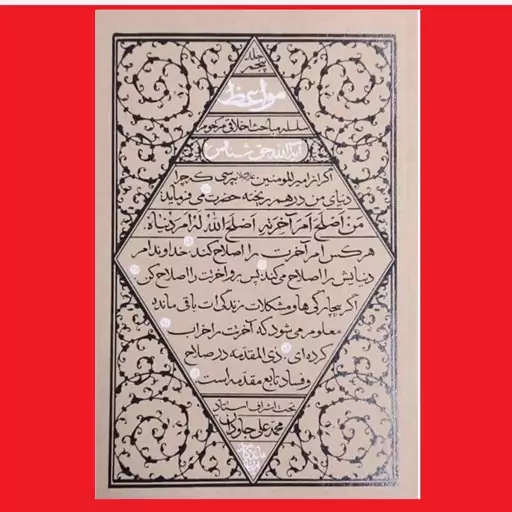 جلد
پنجم
مواعظ
سلسله مباحث اخلاقی مرحوم
آیة الله حق شناس
اگر از امیرالمومنین علیه‌السلام بپرسی که چرا
دنیای من درهم ریخته حضرت می فرماید
مَن اَصلَحَ اَمرَ آخِرَتِهِ اَصلَحَ اللهُ لَهُ اَمرَ دُنیاهُ.
هر کس امر آخرت را اصلاح کند، خداوند امر
دنیایش را اصلاح می‌کند پس رو آخرتت را اصلاح کن.
اگر بیچارگی ها و مشکلات زندگی ات باقی مانده
معلوم می شود که آخرتت را خراب
کرده ای. ذی المقدمه در صلاح
و فساد تابع مقدمه است.
تحت اشراف استاد
محمد علی جاودان